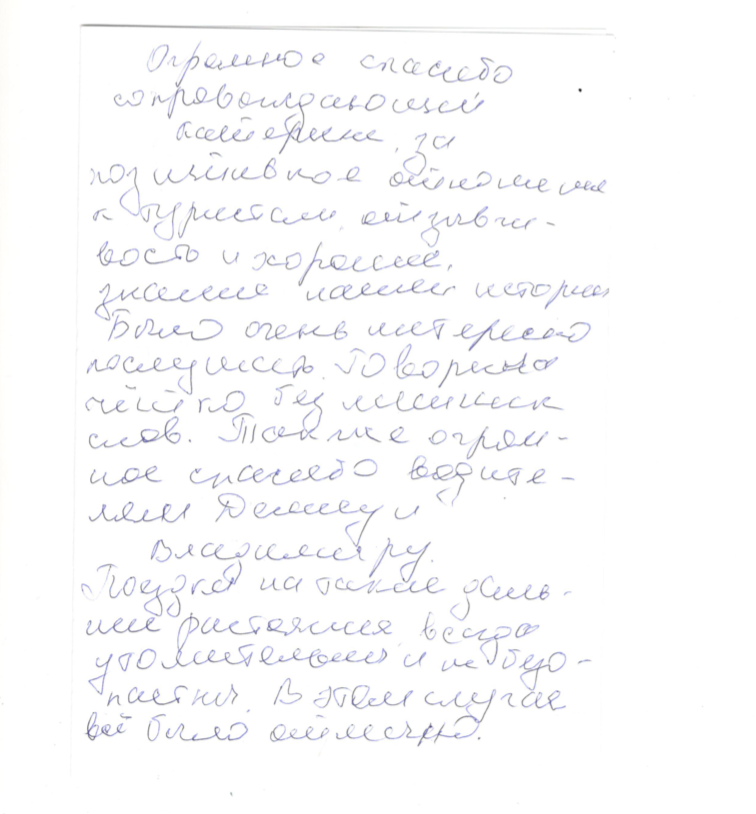 Огромное спасибо
сопровождающей
Катерине, за
позитивное отношение
к туристам, отзывчи-
вость и хорошее,
знание нашей истории
Было очень интересно
послушать. Говорила
чётко без лишних
слов. Также огром-
ное спасибо водите-
лям Денису и
Владимиру.
Поездка на такие даль-
ние растояния всегда
утомительны и не безо-
пастны. В этом случае
всё было отлично.